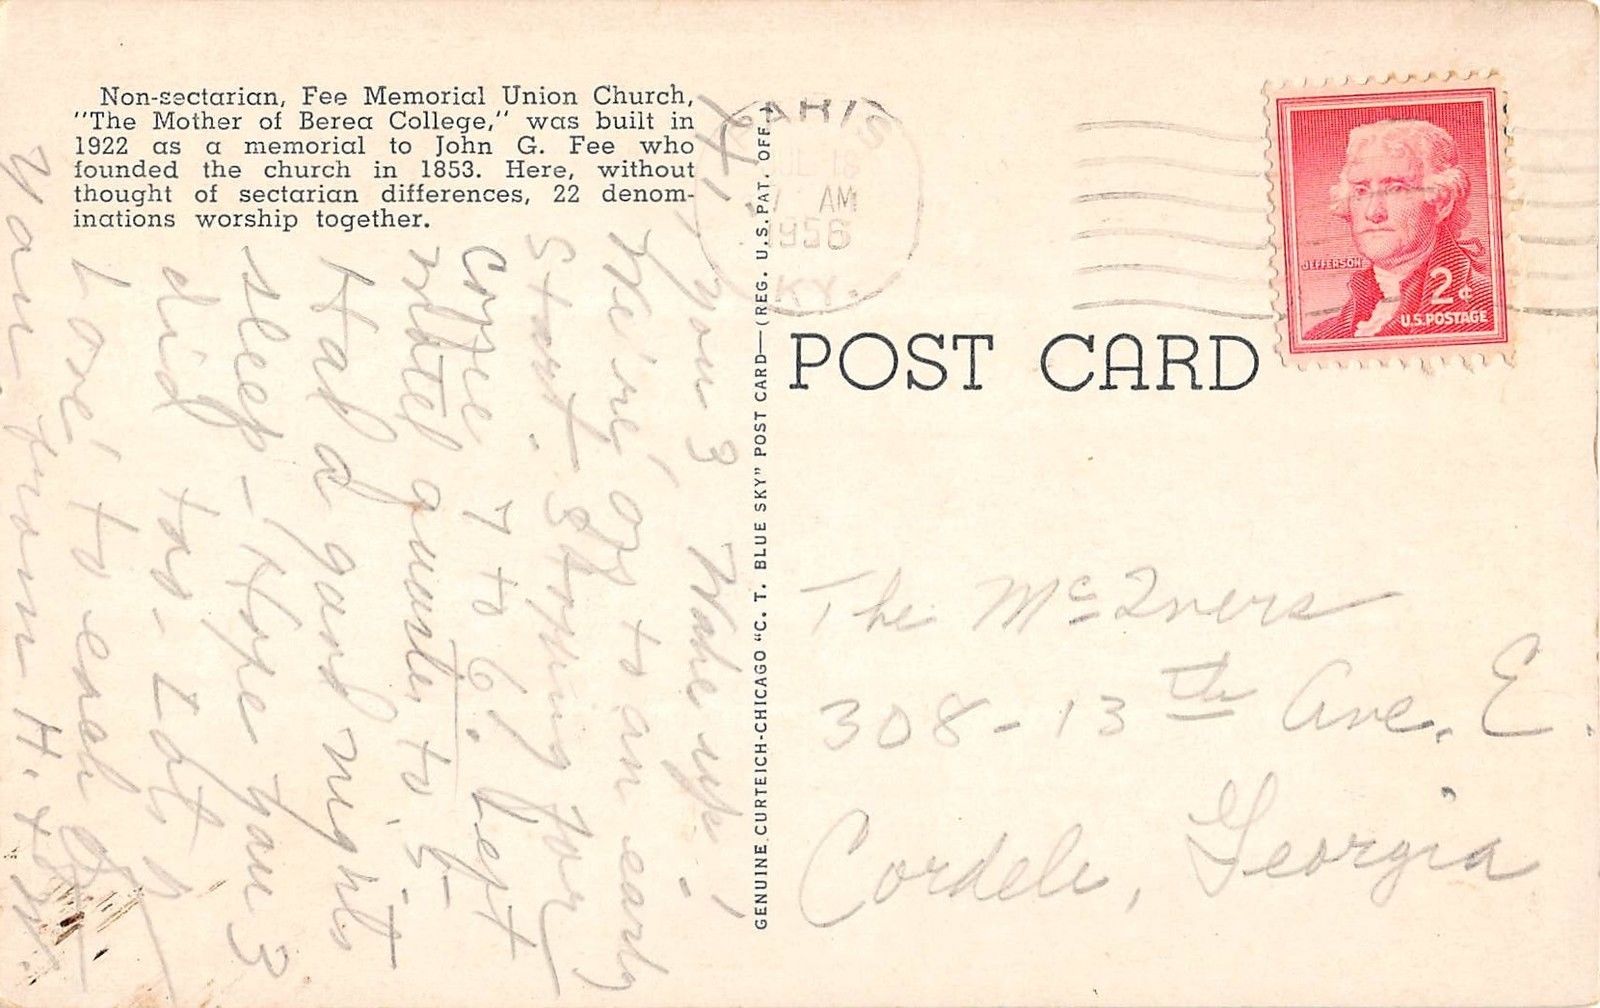 Non-sectarian, Fee Memorial Union Church,
"The Mother of Berea College," was built in
1922 as a memorial to John G. Fee who
founded the church in 1853. Here, without
thought of sectarian differences, 22 denom-
inations worship together.
Hi, you 3 Wake up!
We're off to an early
start. Stopping for
coffee 7 to 6! Left
motel quarter to 5.
Had a good night's
sleep - Hope you 3
did too. Lots of
Love to each of
you from H. & M.
GENUINE CURTEICH-CHICAGO "C. T. BLUE SKY" POST CARD—(REG. U.S.PAT. OFF.)
PARIS
JUL 16
7 AM
1956
KY.
JEFFERSON
2¢
U.S.POSTAGE
POST CARD
The McIvers
308-13th Ave. E.
Cordele, Georgia